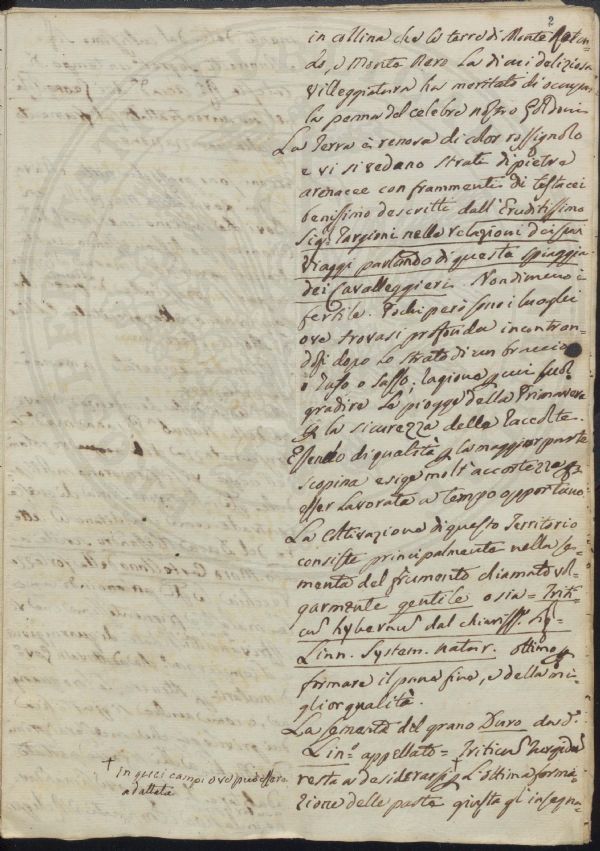 2
in collina che le terre di Monte Roton-
do, e Monte Nero. La di cui deliziosa
villeggiatura ha meritato di occupar
la penna del celebre nostro Goldoni
La Terra è renosa di color rossignolo
e vi si vedano strati di pietre
arenacee con frammenti di testacei
benissimo descritti dall' Eruditissimo
Sig.r Targioni nelle relazioni dei suoi
viaggi parlando di questa spiaggia
dei Cavalleggieri. Nondimeno è
fertile. Pochi però sono i luoghi
ove trovasi profonda incontran-
dosi dopo lo strato di un braccio
o Tufo o Sasso; ragione per cui suol
gradire le piogge della Primavera
p la sicurezza delle raccolte.
Essendo di qualità p la maggior parte
scopina esige molt' accortezza p
esser lavorata a tempo opportuno
La Coltivazione di questo Territorio
consiste principalmente nella se-
menta del frumento chiamato vol-
garmente gentile o sia = Triti-
cum hybernum dal chiariss.
Linn. System. natur. ottimo p
formare il pane fine, e della mi-
glior qualità.
La sementa del grano Duro da d.o
Lin.o appellato = Triticum
resta a desiderarsi p l'ottima forma-
zione delle paste giusta gl' insegna-
† In quei campi ove può essere
adattata